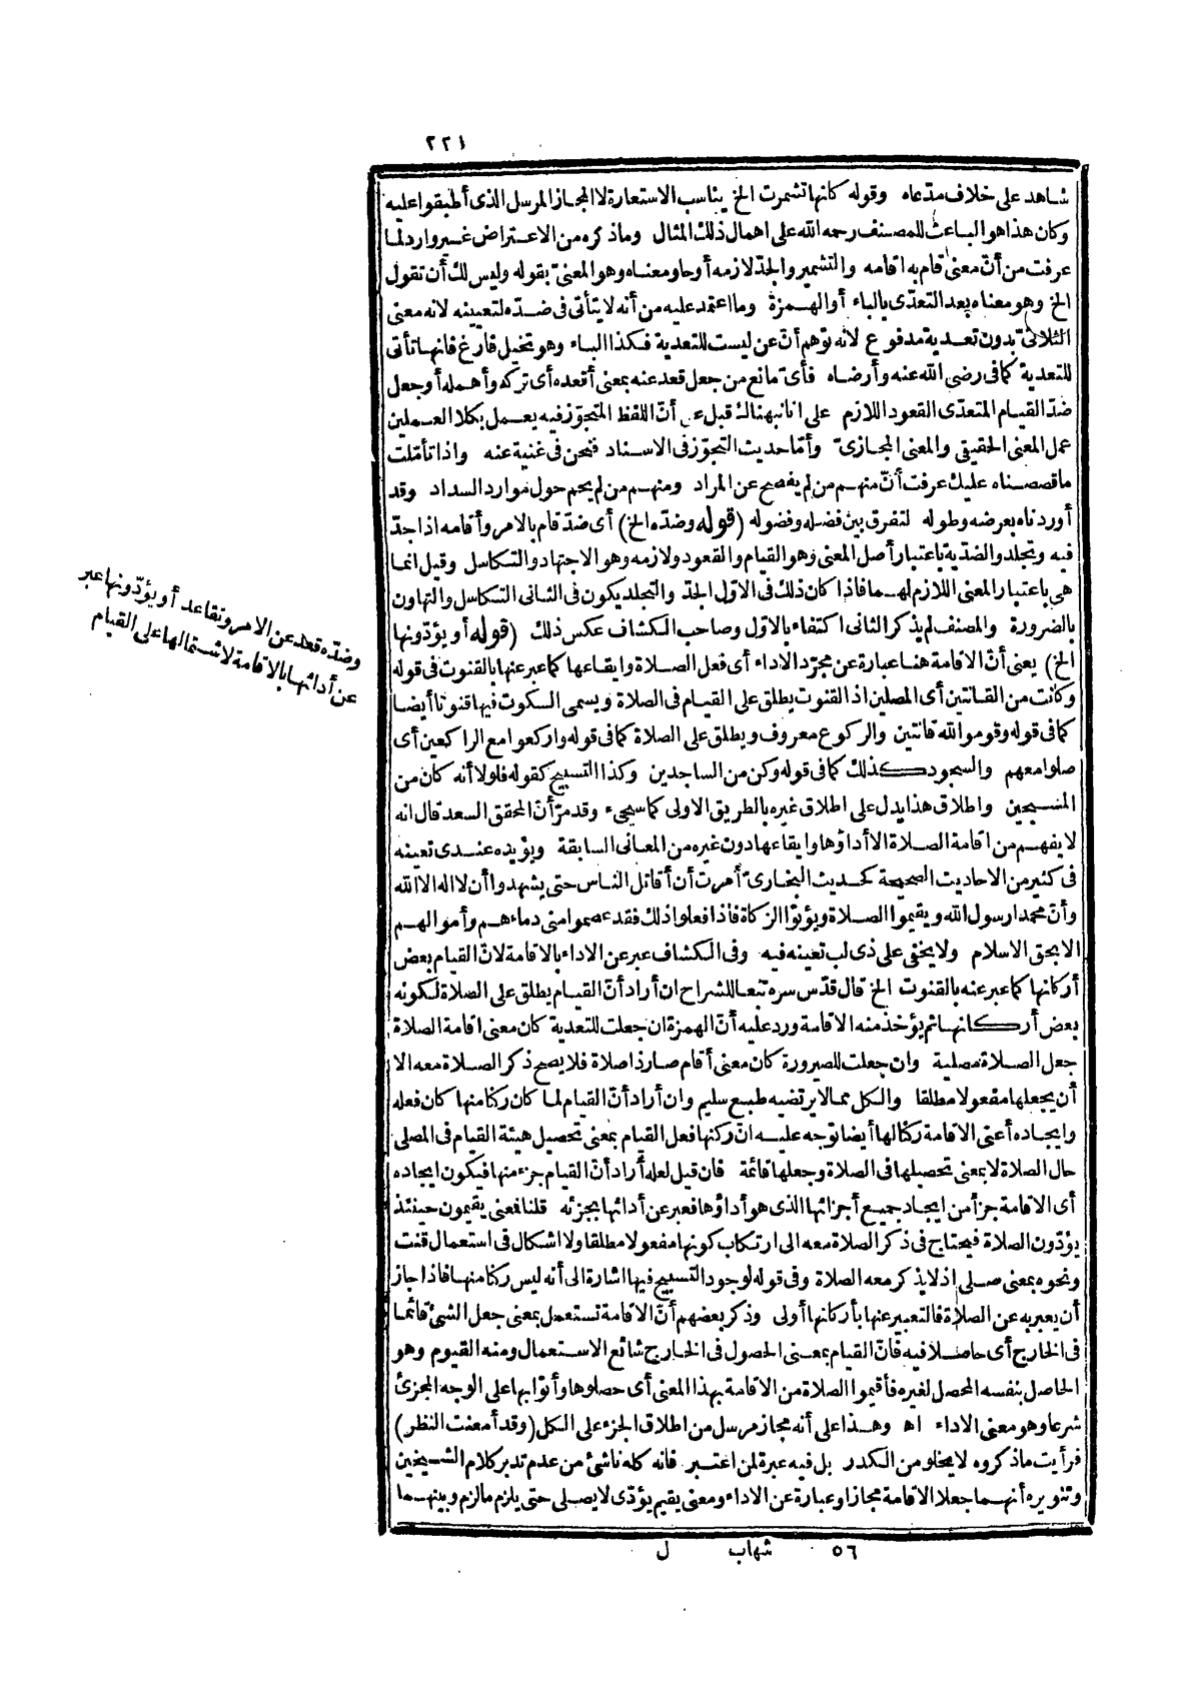 ٢٢١
شاهد على خلاف مدّعاه وقوله كانها تشمرت الخ يناسب الاستعارة لا المجاز المرسل الذى أطبقوا عليه
وكان هذا هو الباعث للمصنف رحمه الله على اهمال ذلك المثال وماذكره من الاعتراض غير وارد لما
عرفت من أنّ معنى قام به اقامه والتشمير والجدّ لازمه أوحاو معناه وهو المعنىّ بقوله وليس لك أن تقول
الخ وهو معناه بعد التعدّى بالباء أو الهمزة وما اعتمد عليه من أنه لا يتأتى فى ضدّه لتعيينه لانه معنى
الثلاثىّ بدون تعدية مدفوع لانه توهم أنّ عن ليست للتعدية فكذا الباء وهو تخيل فارغ فانها تأتى
للتعدية كما فى رضى الله عنه وأرضاه فأىّ مانع من جعل قعد عنه بمعنى أقعده أى تركه وأهمله أو جعل
ضدّ القيام المتعدّى القعود اللازم على انا نبهناك قبل أنّ اللفظ المتجوّز فيه يعمل بكلا العملين
عمل المعنى الحقيقى والمعنى المجازىّ وأمّا حديث التجوّز فى الاسناد فنحن فى غنية عنه واذا تأمّلت
ماقصصناه عليك عرفت أنّ منهم من لم يفصح عن المراد ومنهم من لم يحم حول موارد السداد وقد
أوردناه بعرضه وطوله لتفرق بين فضله وفضوله (قوله وضدّه الخ) أى ضدّ قام بالامر وأقامه اذا جدّ
فيه وتجلد والضدّية باعتبار أصل المعنى وهو القيام والقعود ولازمه وهو الاجتهاد والتكاسل وقيل انما
هى باعتبار المعنى اللازم لهما فاذا كان ذلك فى الاوّل الجدّ والتجلد يكون فى الثانى التكاسل والتهاون
بالضرورة والمصنف لم يذكر الثانى اكتفاء بالاوّل وصاحب الكشاف عكس ذلك (قوله أو يؤدّونها
الخ) يعنى أنّ الاقامة هنا عبارة عن مجرّد الاداء أى فعل الصلاة وايقاعها كما عبر عنها بالقنوت فى قوله
وكانت من القانتين أى المصلين اذ القنوت يطلق على القيام فى الصلاة ويسمى السكوت فيها قنوتا أيضا
كما فى قوله وقوموا لله قانتين والركوع معروف ويطلق على الصلاة كما فى قوله واركعوا مع الراكعين أى
صلوا معهم والسجود كذلك كما فى قوله وكن من الساجدين وكذا التسبيح كقوله فلولا أنه كان من
المسبحين واطلاق هذا يدل على اطلاق غيره بالطريق الاولى كما سيجىء وقد مرّ أنّ المحقق السعد قال انه
لا يفهم من اقامة الصلاة الا أداؤها وايقاعها دون غيره من المعانى السابقة ويؤيده عندى تعينه
فى كثير من الاحاديث الصحيحة كحديث البخارىّ أمرت أن أقاتل الناس حتى يشهدوا أن لا اله الا الله
وأنّ محمدا رسول الله ويقيموا الصلاة ويؤتوا الزكاة فاذا فعلوا ذلك فقد عصموا منى دماءهم وأموالهم
الا بحق الاسلام ولا يخفى على ذى لب تعينه فيه وفى الكشاف عبر عن الاداء بالاقامة لانّ القيام بعض
أركانها كما عبر عنه بالقنوت الخ قال قدّس سره تبعا للشراح ان أراد أنّ القيام يطلق على الصلاة لكونه
بعض أركانها ثم يؤخذ منه الاقامة ورد عليه أنّ الهمزة ان جعلت للتعدية كان معنى اقامة الصلاة
جعل الصلاة مصلية وان جعلت للصيرورة كان معنى أقام صار ذا صلاة فلا يصح ذكر الصلاة معه الا
أن يجعلها مفعولا مطلقا والكل مما لا يرتضيه طبع سليم وان أراد أنّ القيام لما كان ركنا منها كان فعله
وايجاده أعنى الاقامة ركنا لها أيضا توجه عليه انّ ركنها فعل القيام بمعنى تحصيل هيئة القيام فى المصلى
حال الصلاة لا بمعنى تحصيلها فى الصلاة وجعلها قائمة فان قيل لعله أراد أنّ القيام جزء منها فيكون ايجاده
أى الاقامة جزأ من ايجاد جميع أجزائها الذى هو أداؤها فعبر عن أدائها بجزئه قلنا فمعنى يقيمون حينئذ
يؤدّون الصلاة فيحتاج فى ذكر الصلاة معه الى ارتكاب كونها مفعولا مطلقا ولا اشكال فى استعمال قنت
ونحوه بمعنى صلى اذ لا يذكر معه الصلاة وفى قوله لوجود التسبيح فيها اشارة الى أنه ليس ركنا منها فاذا جاز
أن يعبر به عن الصلاة فالتعبير عنها بأركانها أولى وذكر بعضهم أنّ الاقامة تستعمل بمعنى جعل الشئ قائما
فى الخارج أى حاصلا فيه فانّ القيام بمعنى الحصول فى الخارج شائع الاستعمال ومنه القيوم وهو
الحاصل بنفسه المحصل لغيره فأقيموا الصلاة من الاقامة بهذا المعنى أى حصلوها وأتوا بها على الوجه المجزئ
شرعا وهو معنى الاداء اه وهذا على أنه مجاز مرسل من اطلاق الجزء على الكل (وقد أمعنت النظر)
فرأيت ماذكروه لا يخلو من الكدر بل فيه عبرة لمن اعتبر فانه كله ناشئ من عدم تدبر كلام الشيخين
وتنويره أنهما جعلا الاقامة مجازا وعبارة عن الاداء ومعنى يقيم يؤدّى لا يصلى حتى يلزم مالزم وبينهما
وضدّه قعد عن الامر وتقاعد أو يؤدّونها عبر
عن أدائها بالاقامة لاشتمالها على القيام
٥٦ شهاب ل